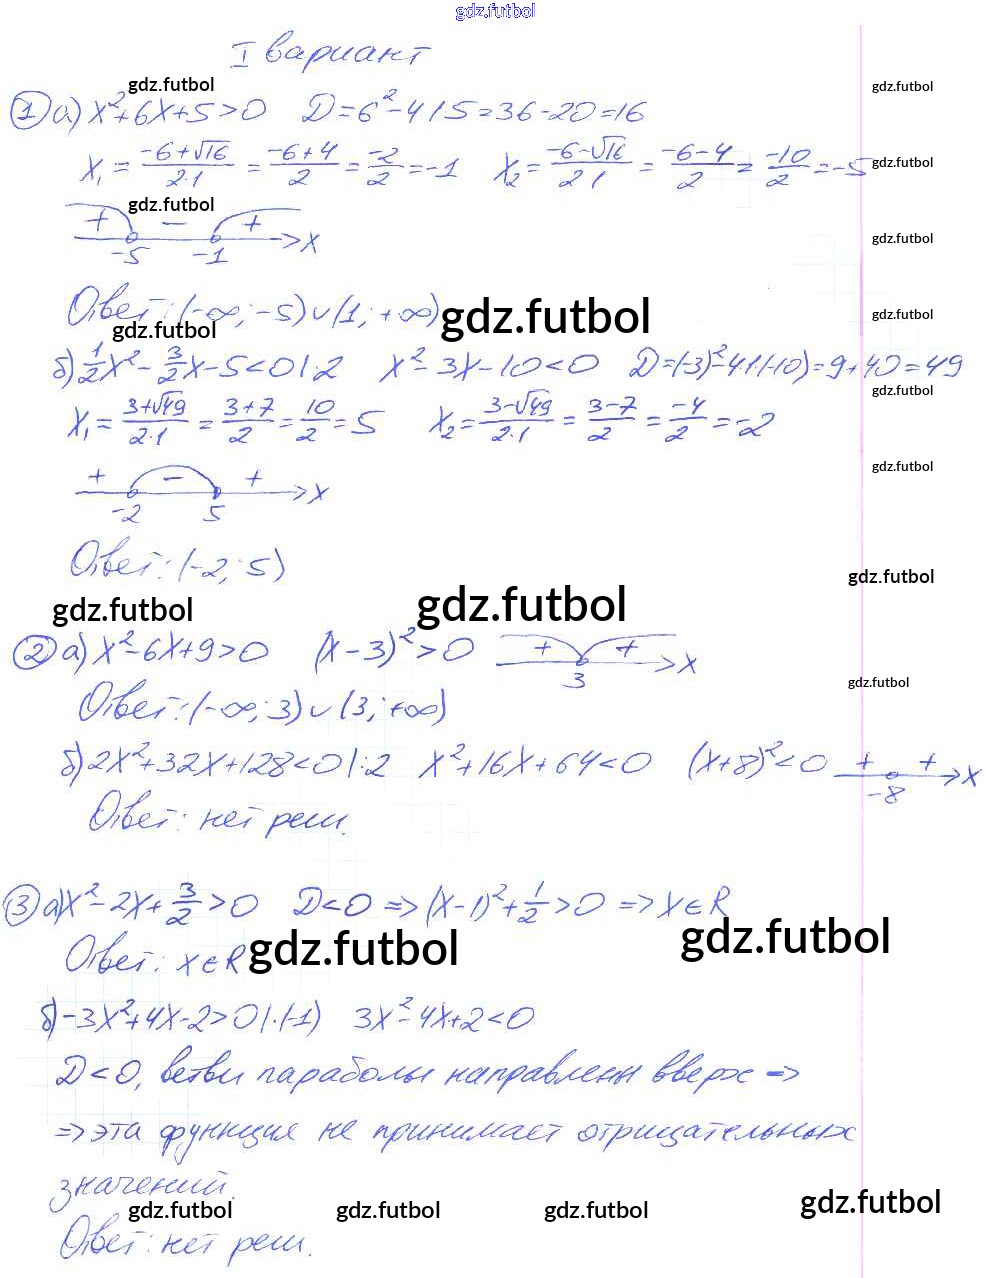 gdz.futbol
I вариант
gdz.futbol gdz.futbol
① а) x²+6x+5>0 D=6²-4·1·5=36-20=16
x₁ = (-6+√16)/(2·1) = (-6+4)/2 = -2/2 = -1 x₂ = (-6-√16)/(2·1) = (-6-4)/2 = -10/2 = -5 gdz.futbol
gdz.futbol
+ − + x
-5 -1 gdz.futbol
Ответ: (-∞; -5) ∪ (1; +∞) gdz.futbol gdz.futbol
gdz.futbol
б) 1/2x² - 3/2x - 5 < 0 |·2 x² - 3x - 10 < 0 D=(-3)²-4·1·(-10)=9+40=49
gdz.futbol
x₁ = (3+√49)/(2·1) = (3+7)/2 = 10/2 = 5 x₂ = (3-√49)/(2·1) = (3-7)/2 = -4/2 = -2
gdz.futbol
+ − + x
-2 5
Ответ: (-2; 5)
gdz.futbol
gdz.futbol gdz.futbol
② а) x²-6x+9>0 (x-3)²>0 + + x
3 gdz.futbol
Ответ: (-∞; 3) ∪ (3; +∞)
б) 2x²+32x+128<0 |:2 x²+16x+64<0 (x+8)²<0 + + x
-8
Ответ: нет реш.
③ а) x²-2x+3/2>0 D<0 => (x-1)²+1/2>0 => x∈R
gdz.futbol gdz.futbol
Ответ: x∈R
б) -3x²+4x-2>0 |·(-1) 3x²-4x+2<0
D<0, ветви параболы направлены вверх =>
=> эта функция не принимает отрицательных
значений.
gdz.futbol gdz.futbol gdz.futbol gdz.futbol
Ответ: нет реш.